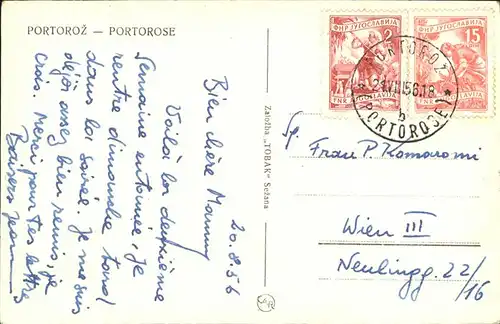 PORTOROŽ — PORTOROSE
20.8.56
Bien chère Mammy
Voilà la deuxième
semaine entamée, je
rentre dimanche tard
dans la soirée. Je me suis
déjà assez bien remis, je
crois. Merci pour tes lettres
Baisers Jean
Založba „TOBAK" Sežana
ФНР ЈУГОСЛАВИЈА
2
FNR JUGOSLAVIJA
ФНР ЈУГОСЛАВИЈА
15
PORTOROŽ
21.VIII.56.18
b
(PORTOROSE)
Sp. Frau P. Komaromi
Wien III
Neulingg. 22/16